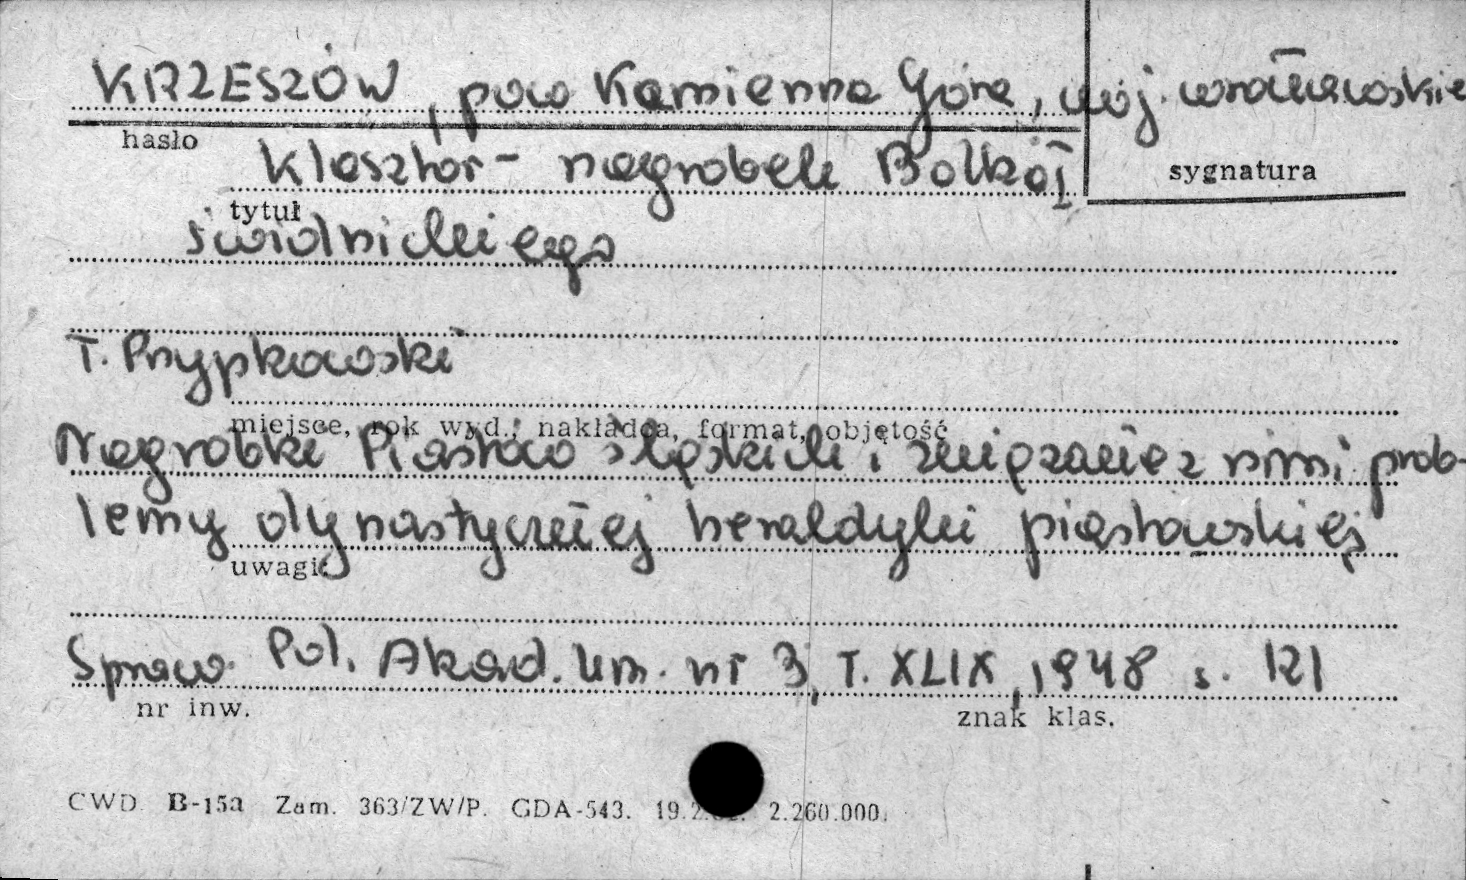 KRZESZÓW, pow Kamienna Góra, woj. wrocławskie
hasło
sygnatura
Klasztor - nagrobek Bolka I
tytuł
świdnickiego
T. Przypkowski
miejsce, rok wyd., nakładca, format, objętość
Nagrobki Piastów śląskich i związane z nimi prob-
lemy dynastycznej heraldyki piastowskiej
uwagi:
Spraw. Pol. Akad. Um. nr 3, T. XLIX, 1948 s. 121
nr inw.
znak klas.
CWD B-15a Zam. 363/ZW/P. GDA-543. 2.260.000.